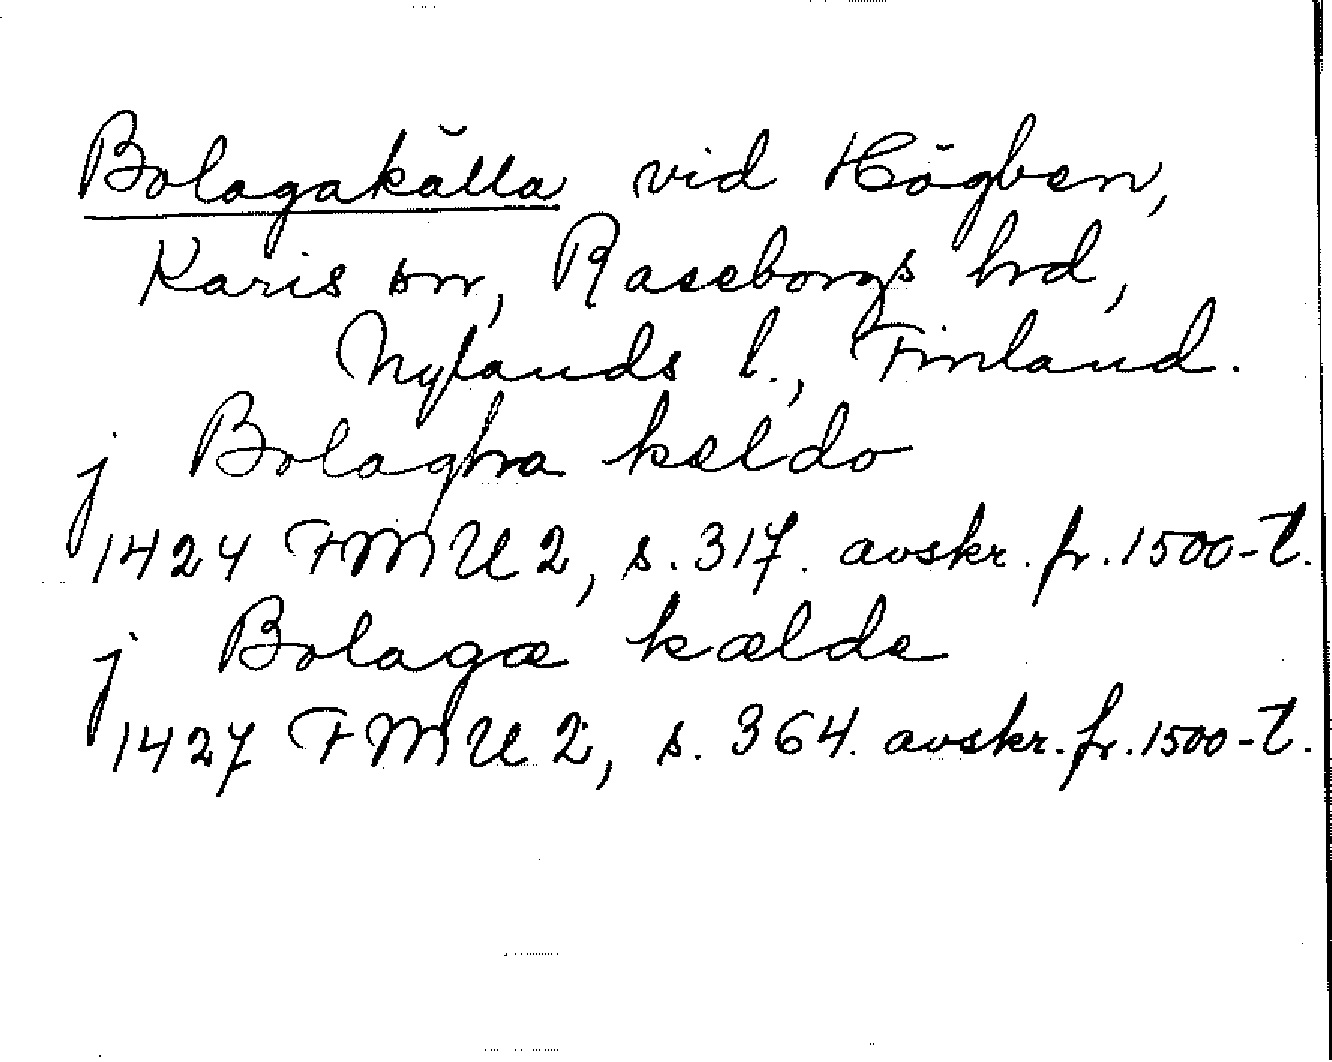 Bolagakälla vid Högben,
Karis sn, Raseborgs hrd,
Nylands l., Finland.
j Bolaghra keldo
1424 FMU 2, s. 317. avskr. fr. 1500-t.
j Bolagæ kælde
1427 FMU 2, s. 364. avskr. fr. 1500-t.